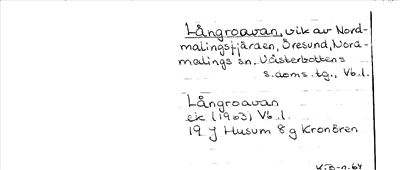 Långroavan, vik av Nord-
malingsfjärden, Öresund, Nord-
malings sn, Västerbottens
s.doms.tg., Vb.l.
Långroavan
ek (1963) Vb.l.
19 J Husum 8 g Kronören